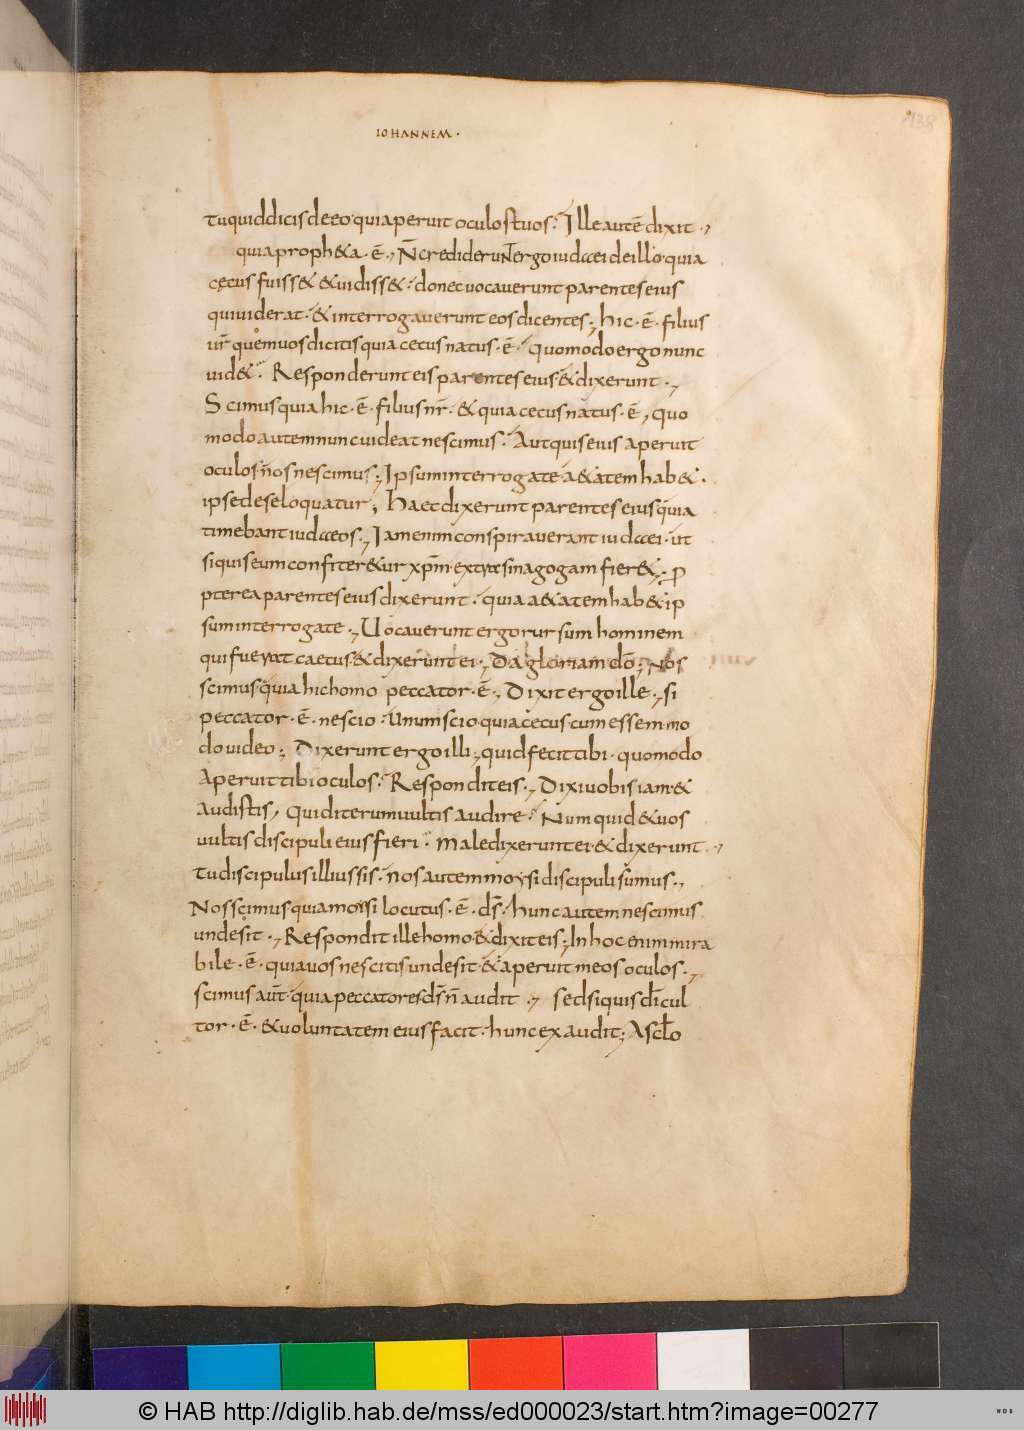 IOHANNEM.
138
tu quid dicis de eo quia aperuit oculos tuos. Ille autē dixit.
quia propheta. ē. N̄ crediderunt ergo iudęi de illo quia
cęcus fuisset & uidisset. donec uocauerunt parentes eius
qui uiderat. & interrogauerunt eos dicentes; hic. ē. filius
ur̄ quem uos dicitis quia cecus natus. ē. quomodo ergo nunc
uid&. Responderunt eis parentes eius & dixerunt.
Scimus quia hic. ē. filius nr̄. & quia cecus natus. ē, quo
modo autem nunc uideat nescimus. Aut quis eius aperuit
oculos nos nescimus; Ipsum interrogate a&atem hab&.
ipse de se loquatur; Haec dixerunt parentes eius quia
timebant iudęos. Iam enim conspirauerant iudęi. ut
si quis eum confiter&ur xp̄m. extra sinagogam fier&; p
pterea parentes eius dixerunt. quia a&atem hab& ip
sum interrogate. Uocauerunt ergo rursum hominem
qui fuerat caecus. & dixerunt ei. Da gloriam dō; Nos
scimus quia hic homo peccator. ē. Dixit ergo ille. si
peccator. ē. nescio. Unum scio quia cecus cum essem mo
do uideo; Dixerunt ergo illi; quid fecit tibi. quomodo
Aperuit tibi oculos. Respondit eis. Dixi uobis iam &
Audistis, Quid iterum uultis audire. Num quid & uos
uultis discipuli eius fieri. Maledixerunt ei & dixerunt.
Tu discipulus illius sis. nos autem moysi discipuli sumus.
Nos scimus quia moysi locutus. ē. ds̄. hunc autem nescimus
unde sit. Respondit ille homo & dixit eis; In hoc enim mira
bile. ē. quia uos nescitis unde sit & aperuit meos oculos.
scimus aut̄. quia peccatores ds̄ n̄ audit. sed si quis dī cul
tor. ē. & uoluntatem eius facit. hunc exaudit; A sclo
© HAB http://diglib.hab.de/mss/ed000023/start.htm?image=00277
WDB